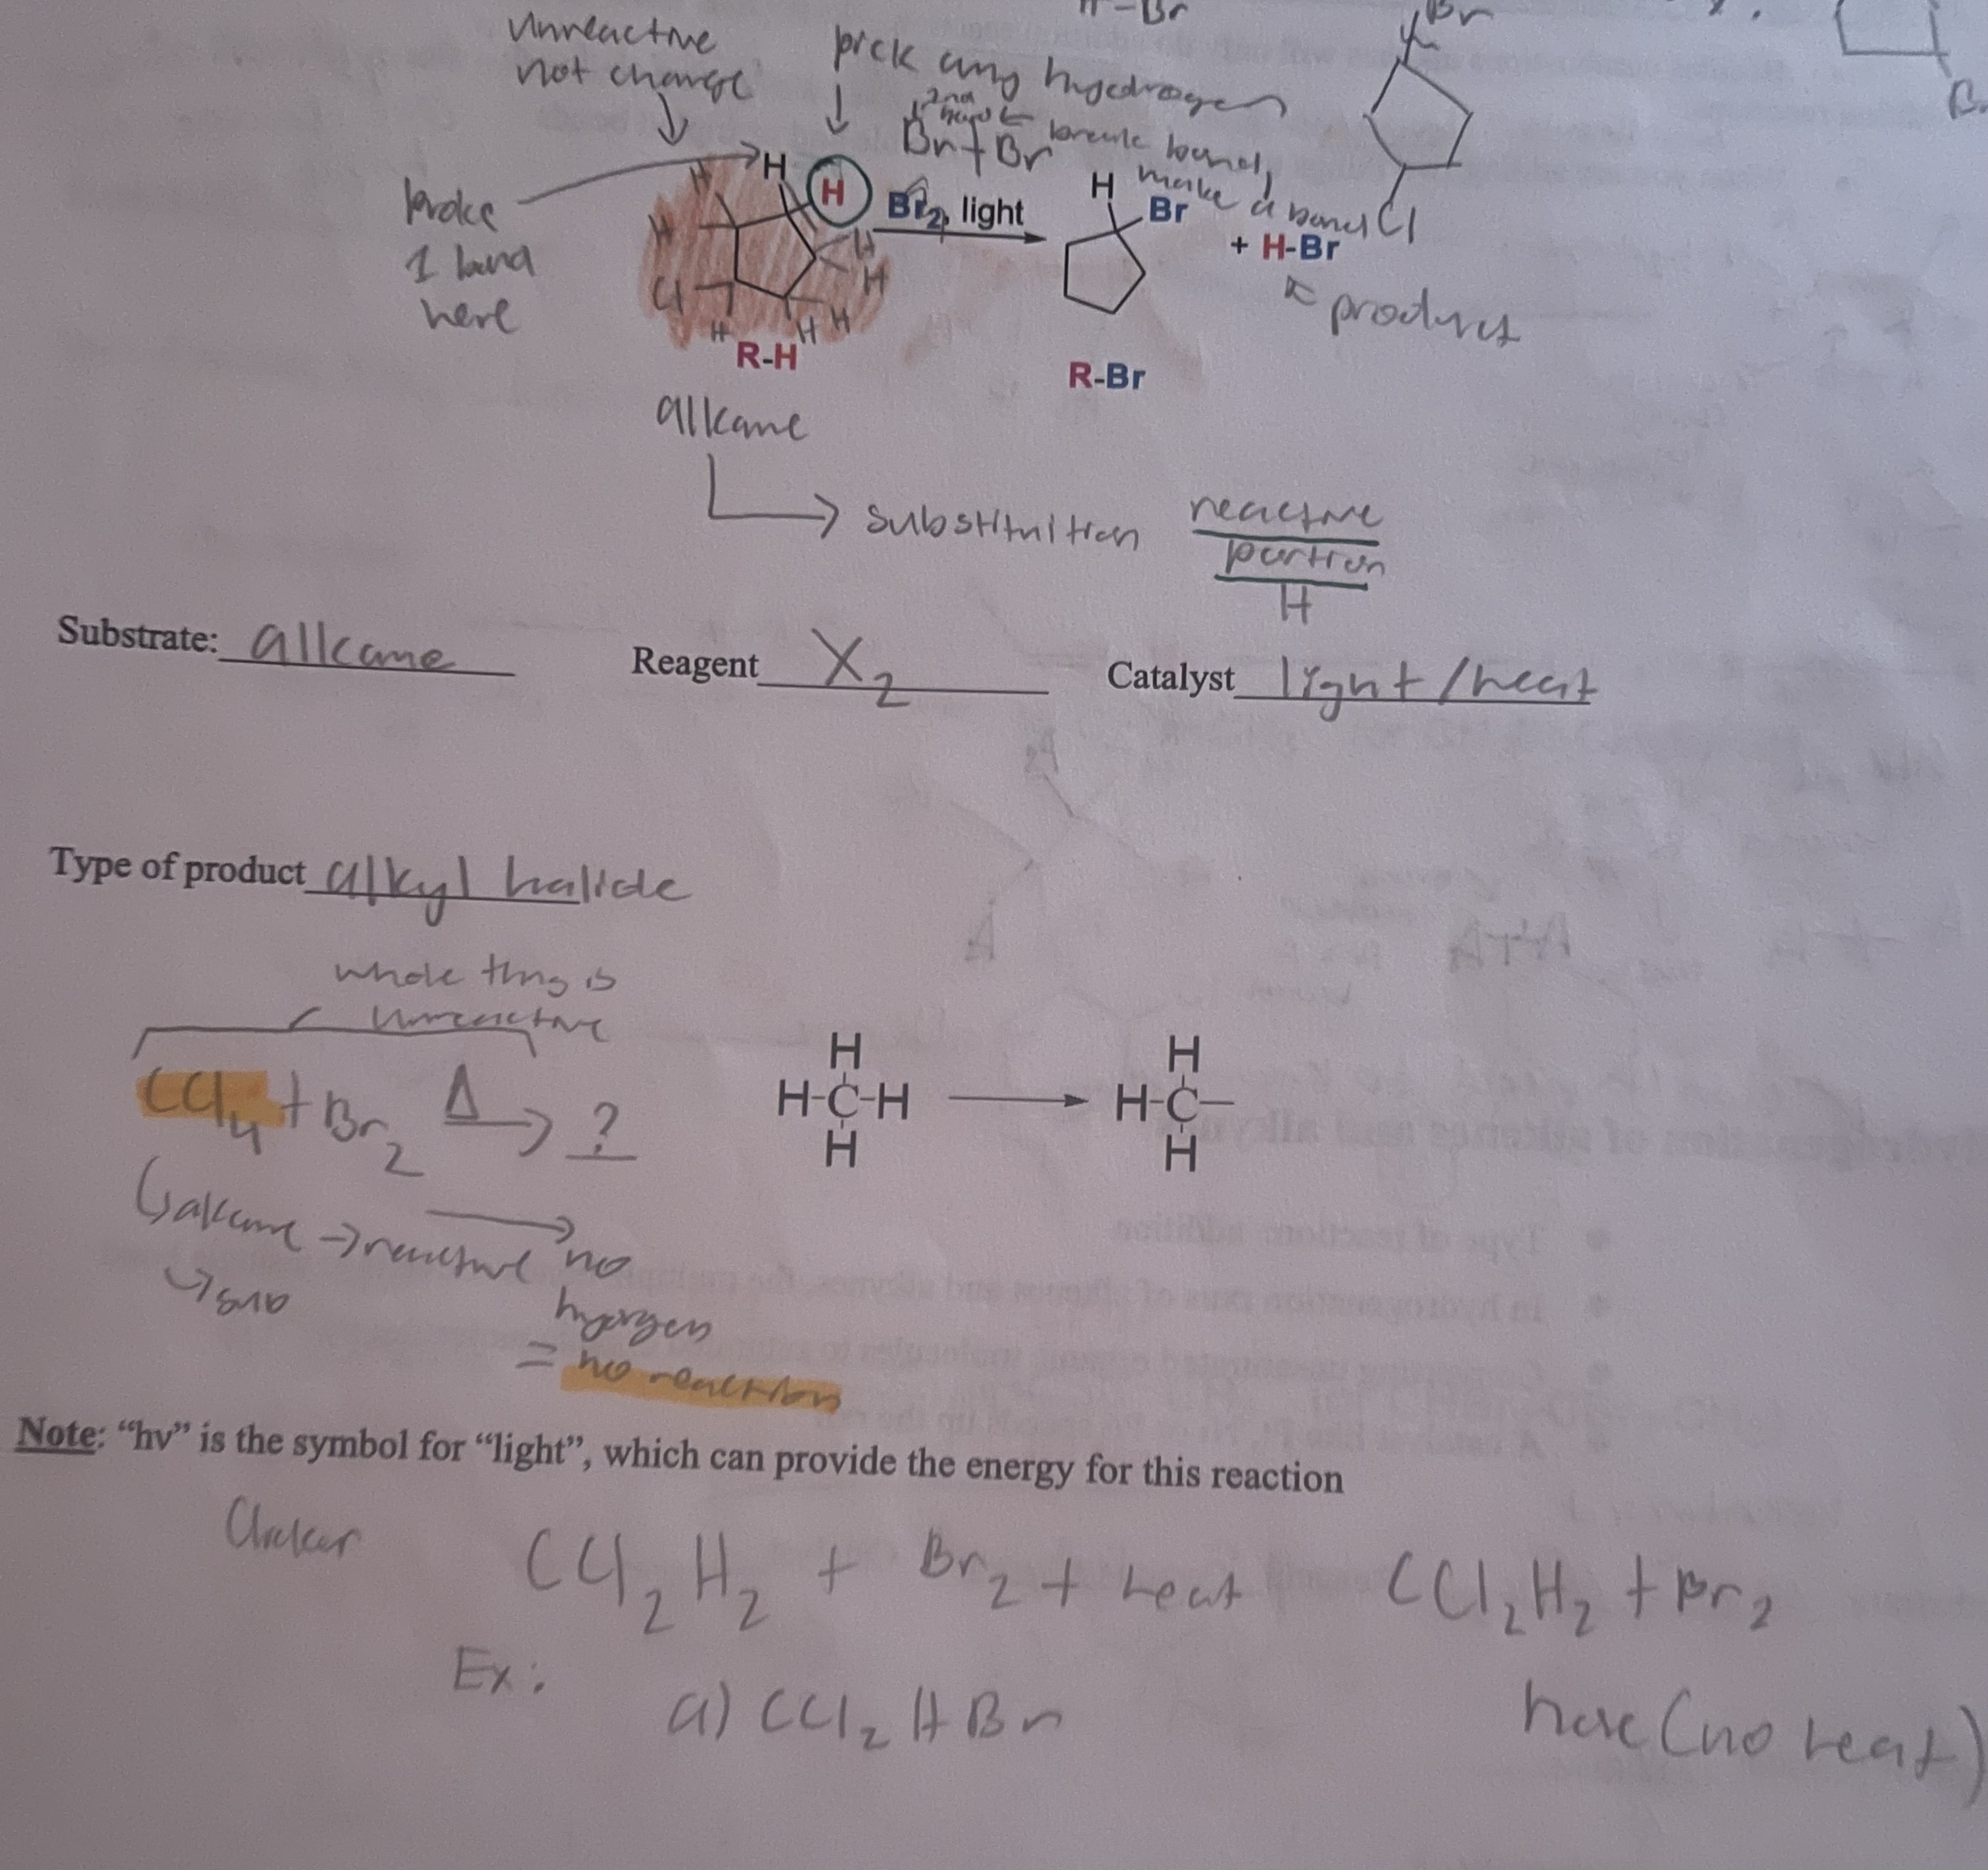 H-Br
Br
Unreactive
not change
pick any hydrogen
2nd
Br + Br break bond,
make a bond
broke
1 bond
here
H
H
H
H
H
Cl
H
H
H
H
Br2, light
H
Br
+ H-Br
Cl
product
R-H
R-Br
alkane
substituition
reactive
portion
H
Substrate: alkane Reagent X2 Catalyst light/heat
Type of product alkyl halide
whole thing is
unreactive
CCl4 + Br2 Δ → ?
H
H-C-H
H
H
H-C-
H
alkane → reactive → no
sub
hyorgen
= no reaction
Note: "hv" is the symbol for "light", which can provide the energy for this reaction
Clicker
CCl2H2 + Br2 + heat CCl2H2 + Br2
Ex:
a) CCl2HBr
(no heat)